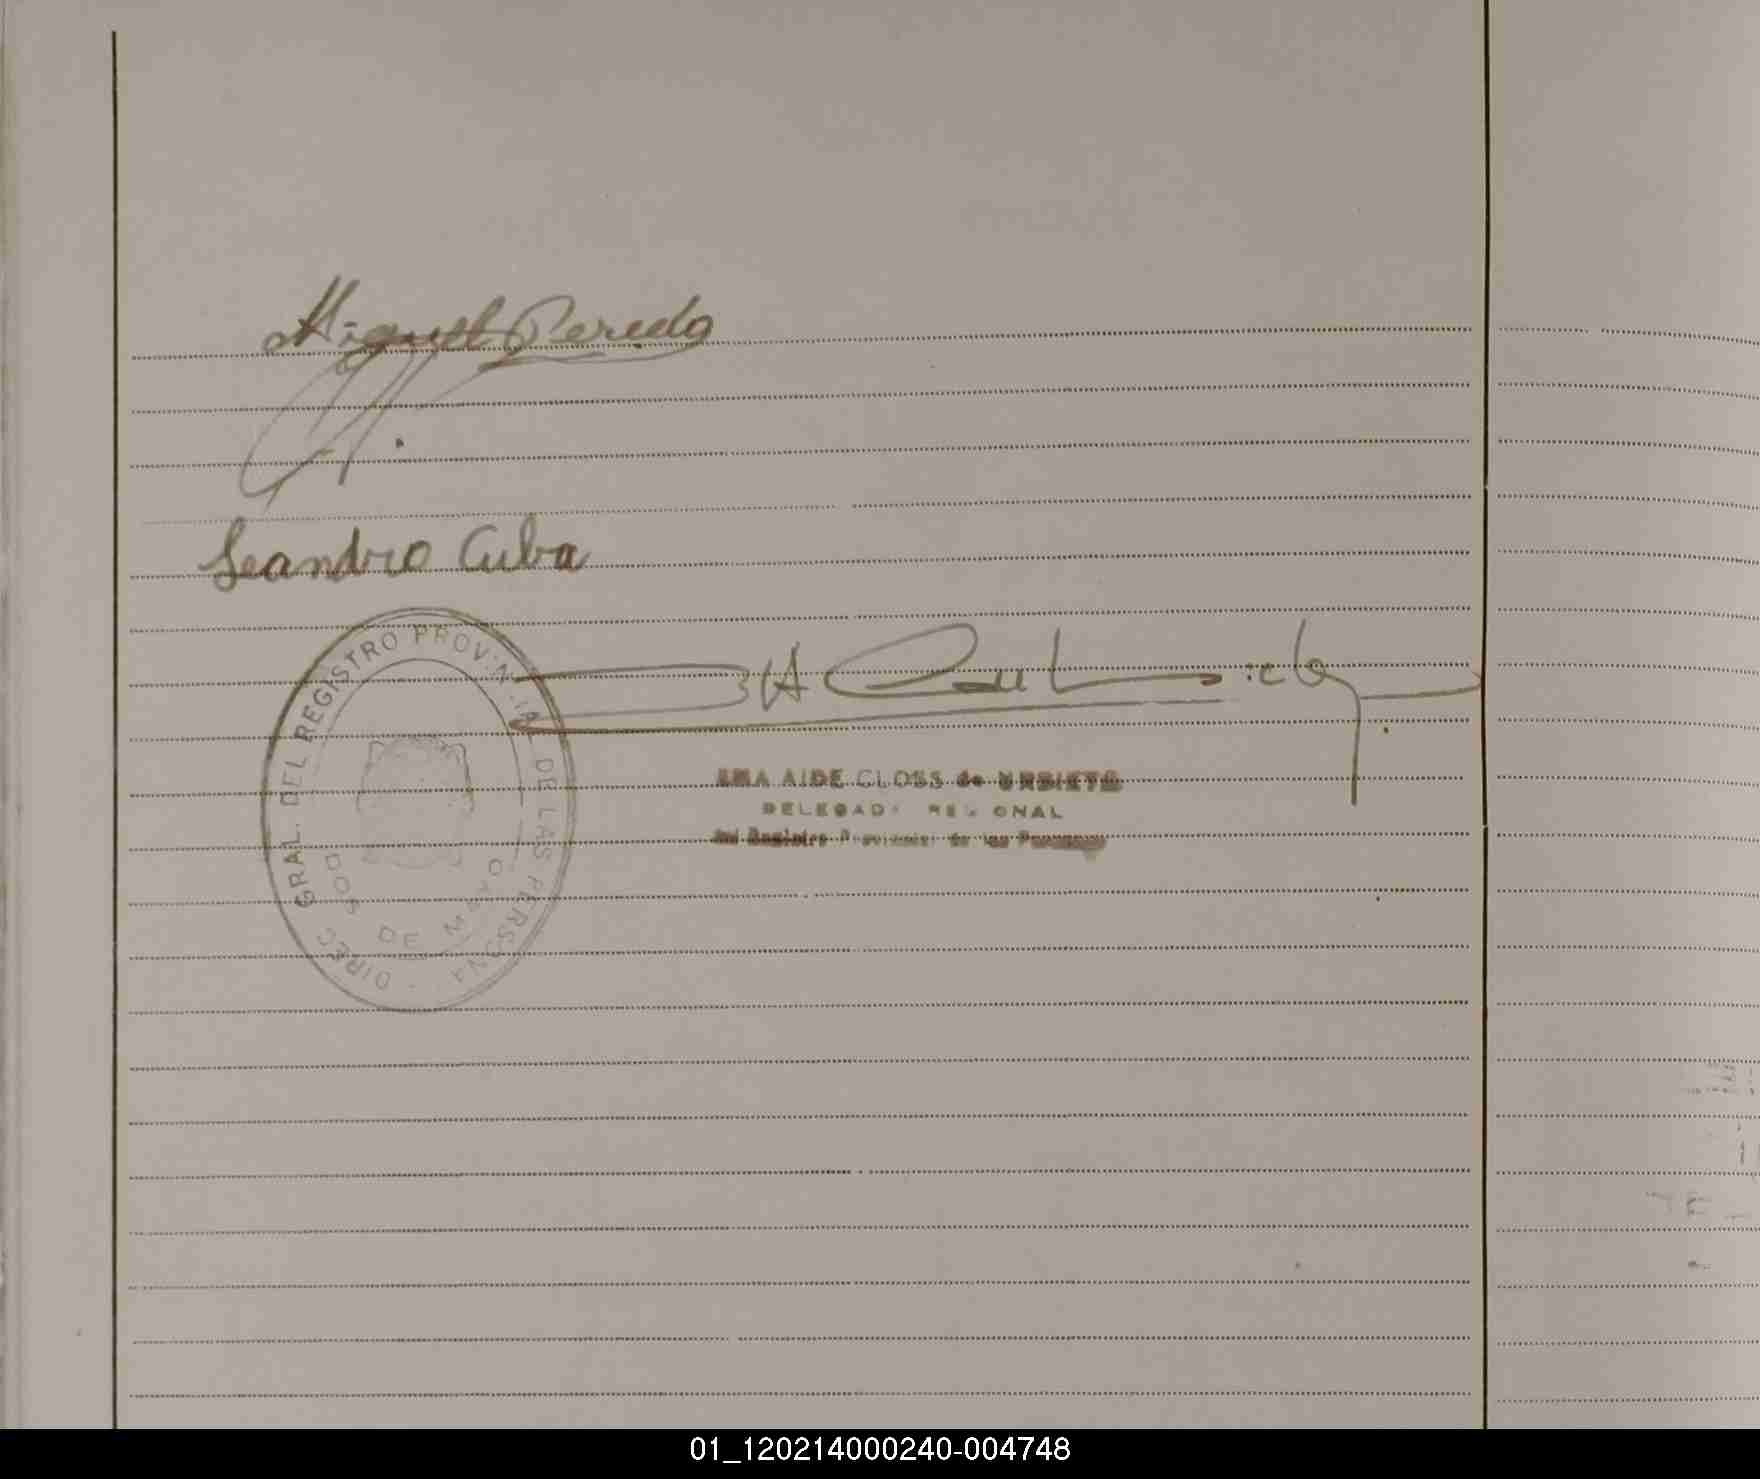 Miguel Peredo
Leandro Cuba
DIREC GRAL. DEL REGISTRO PROVINCIAL DE LAS PERSONAS
DOS DE MAYO
AIDE CLOSS de URBIETA
DELEGADA REGIONAL
del Registro Provincial de las Personas
01_120214000240-004748